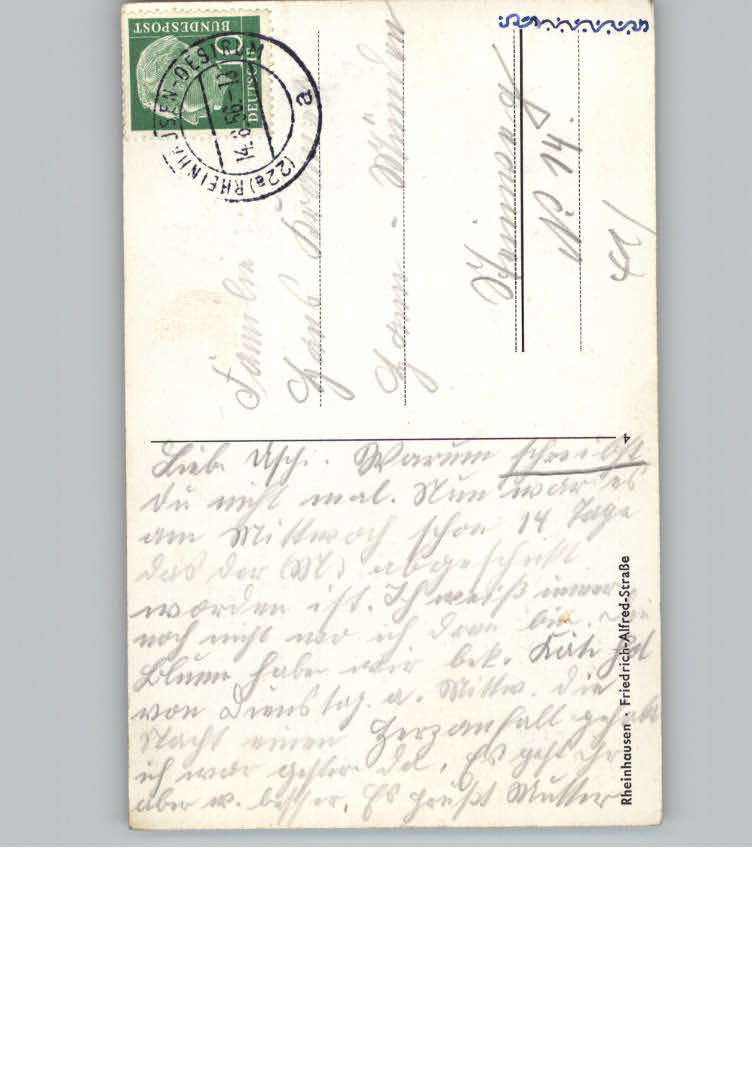 BUNDESPOST
DEUTSCHE
(22a) RHEINHAUSEN-OESTRUM
14.6.56.-18
a
Familie
Hann. - Münden
Steinweg
No 14.
4
Liebe Uschi. Warum schreibst
du nicht mal. Nun war es
am Mittwoch schon 14 Tage
das der abgeschickt
worden ist. Ich weiß immer
noch nicht wo ich dran bin. Die
Blumen habe wir bek. Käte hat
von Dienstag a. Mittw. die
Nacht einen Herzanfall gehabt
ich war gestern da. Es geht ihr
aber w. besser. Es grüßt Mutter
Rheinhausen · Friedrich-Alfred-Straße